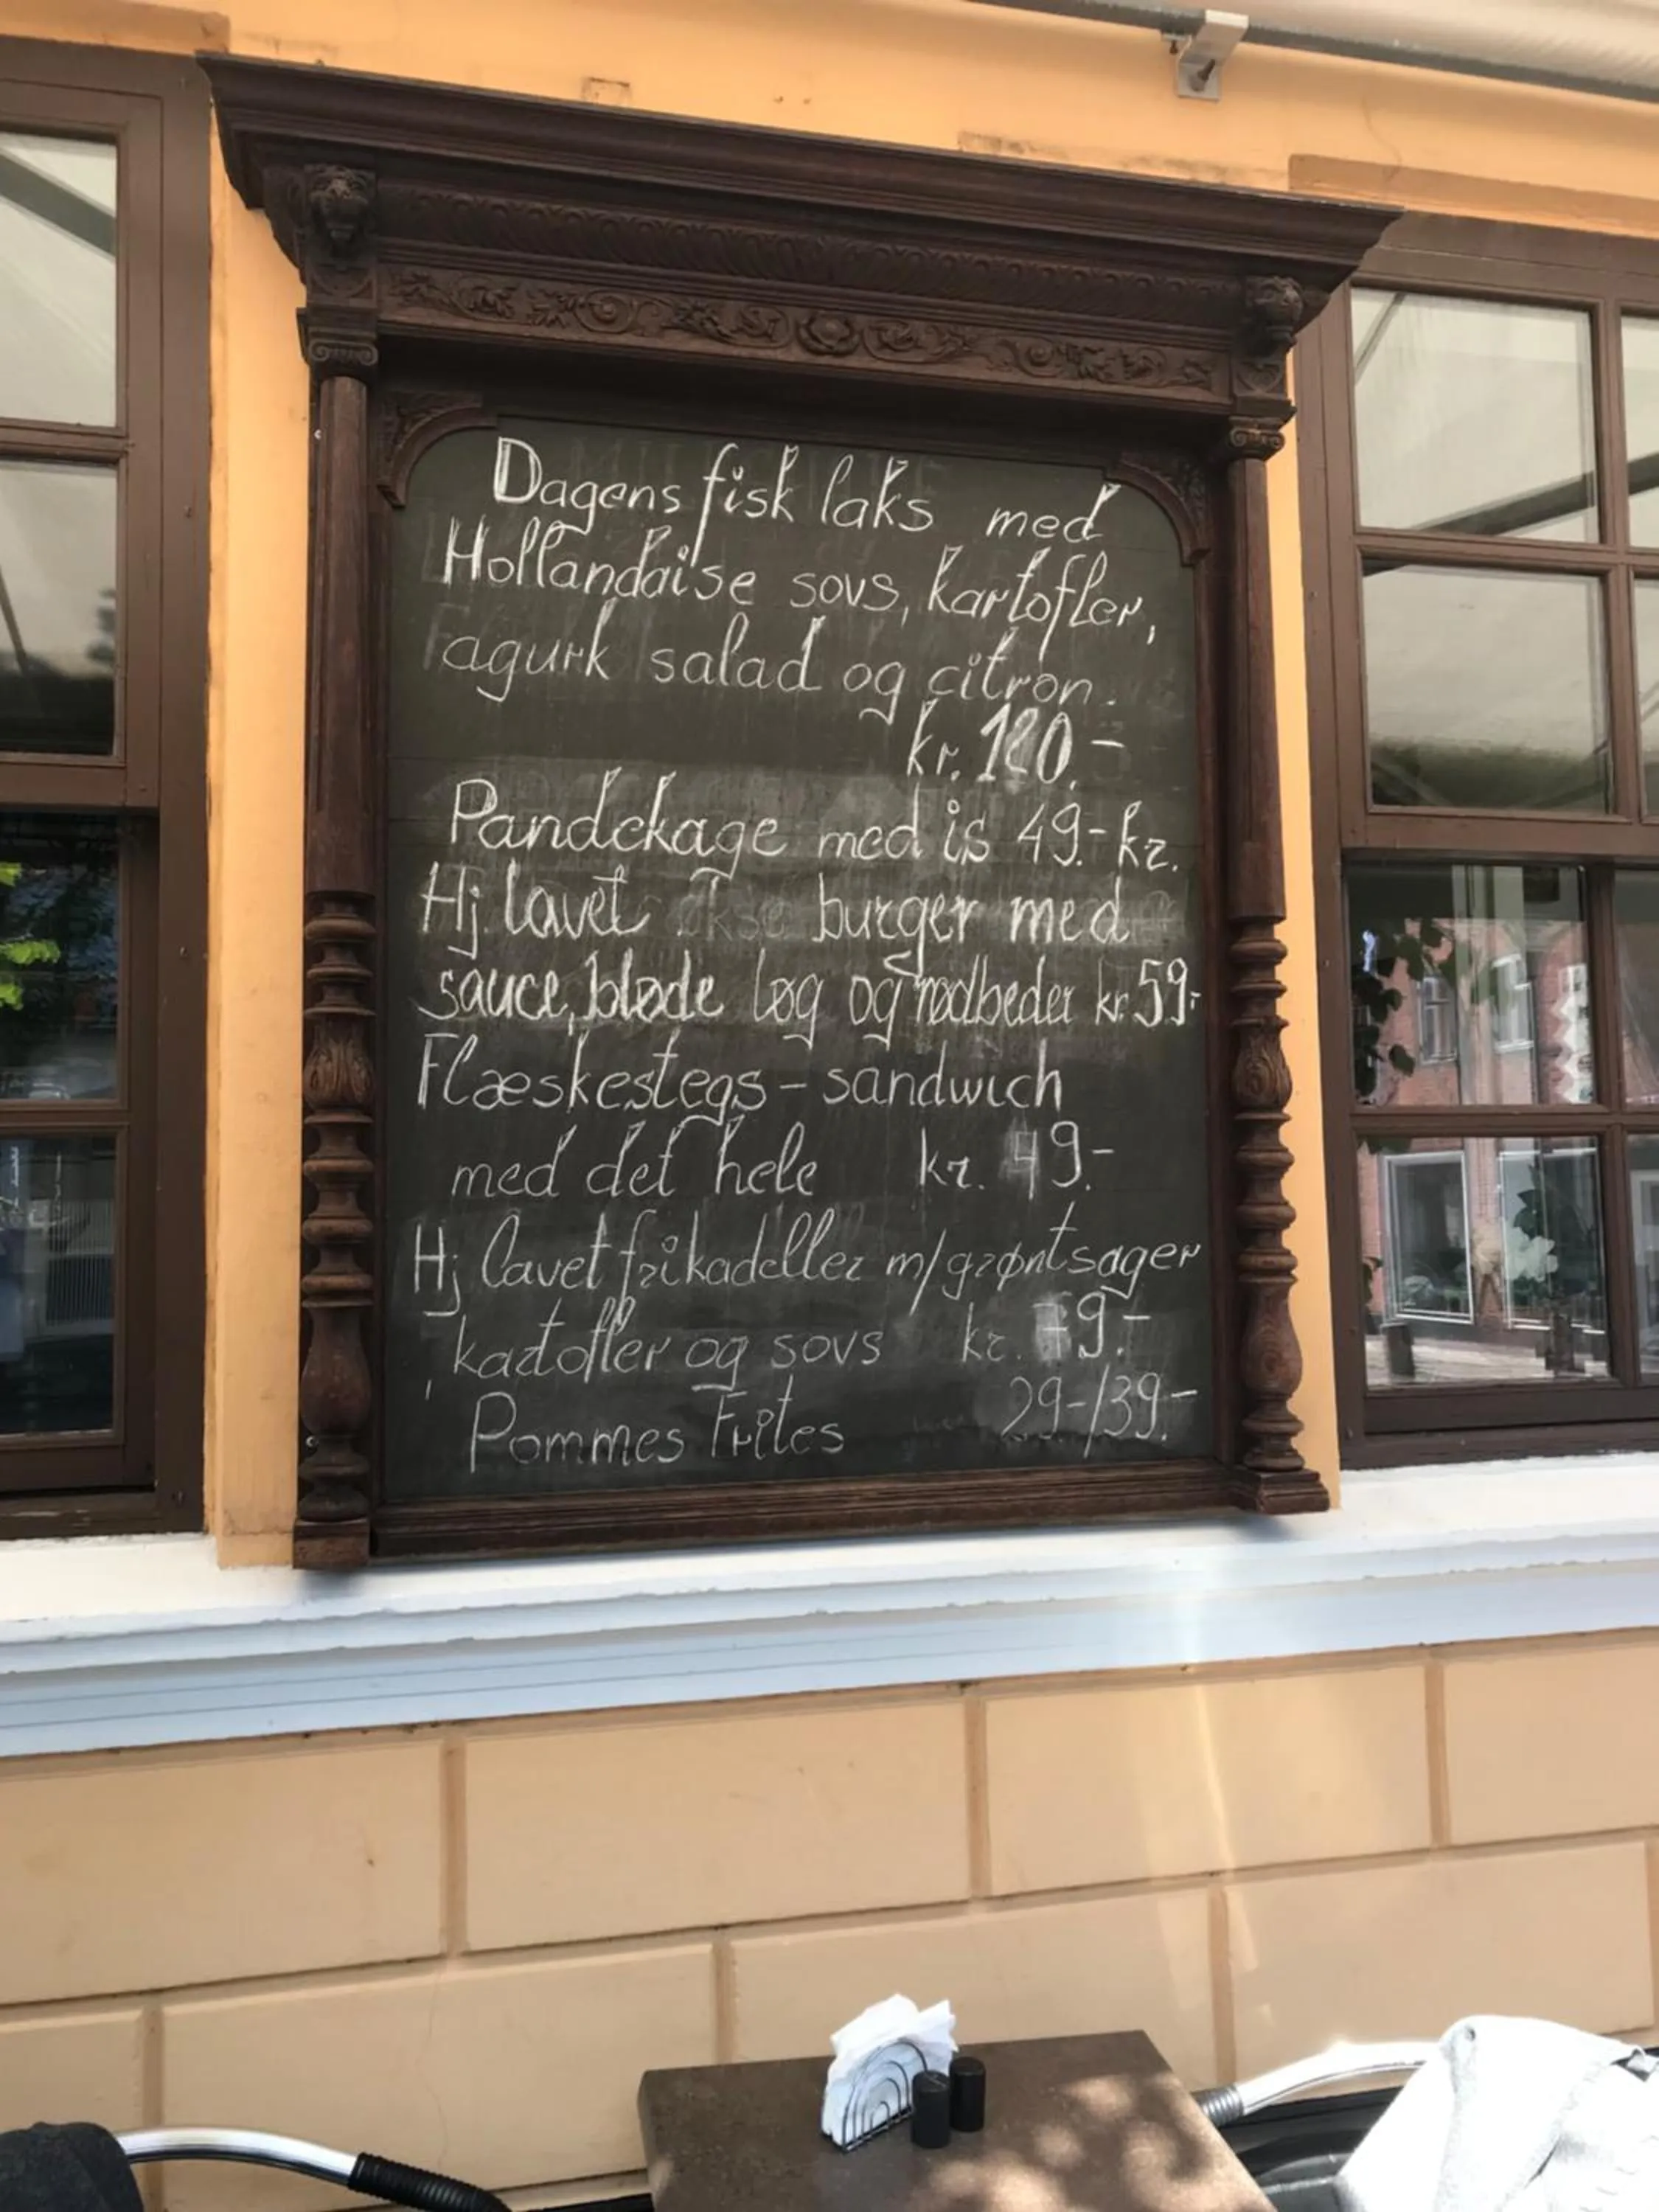 Dagens fisk laks med
Hollandaise sovs, kartofler,
agurk salad og citron.
kr. 120.-
Pandekage med is 49.- kr.
Hj. lavet økse burger med
sauce, bløde løg og rødbeder kr. 59.-
Flæskestegs - sandwich
med det hele kr. 49.-
Hj lavet frikadeller m/grøntsager
, kartofler og sovs kr. 79.-
Pommes Frites 29.-/39.-